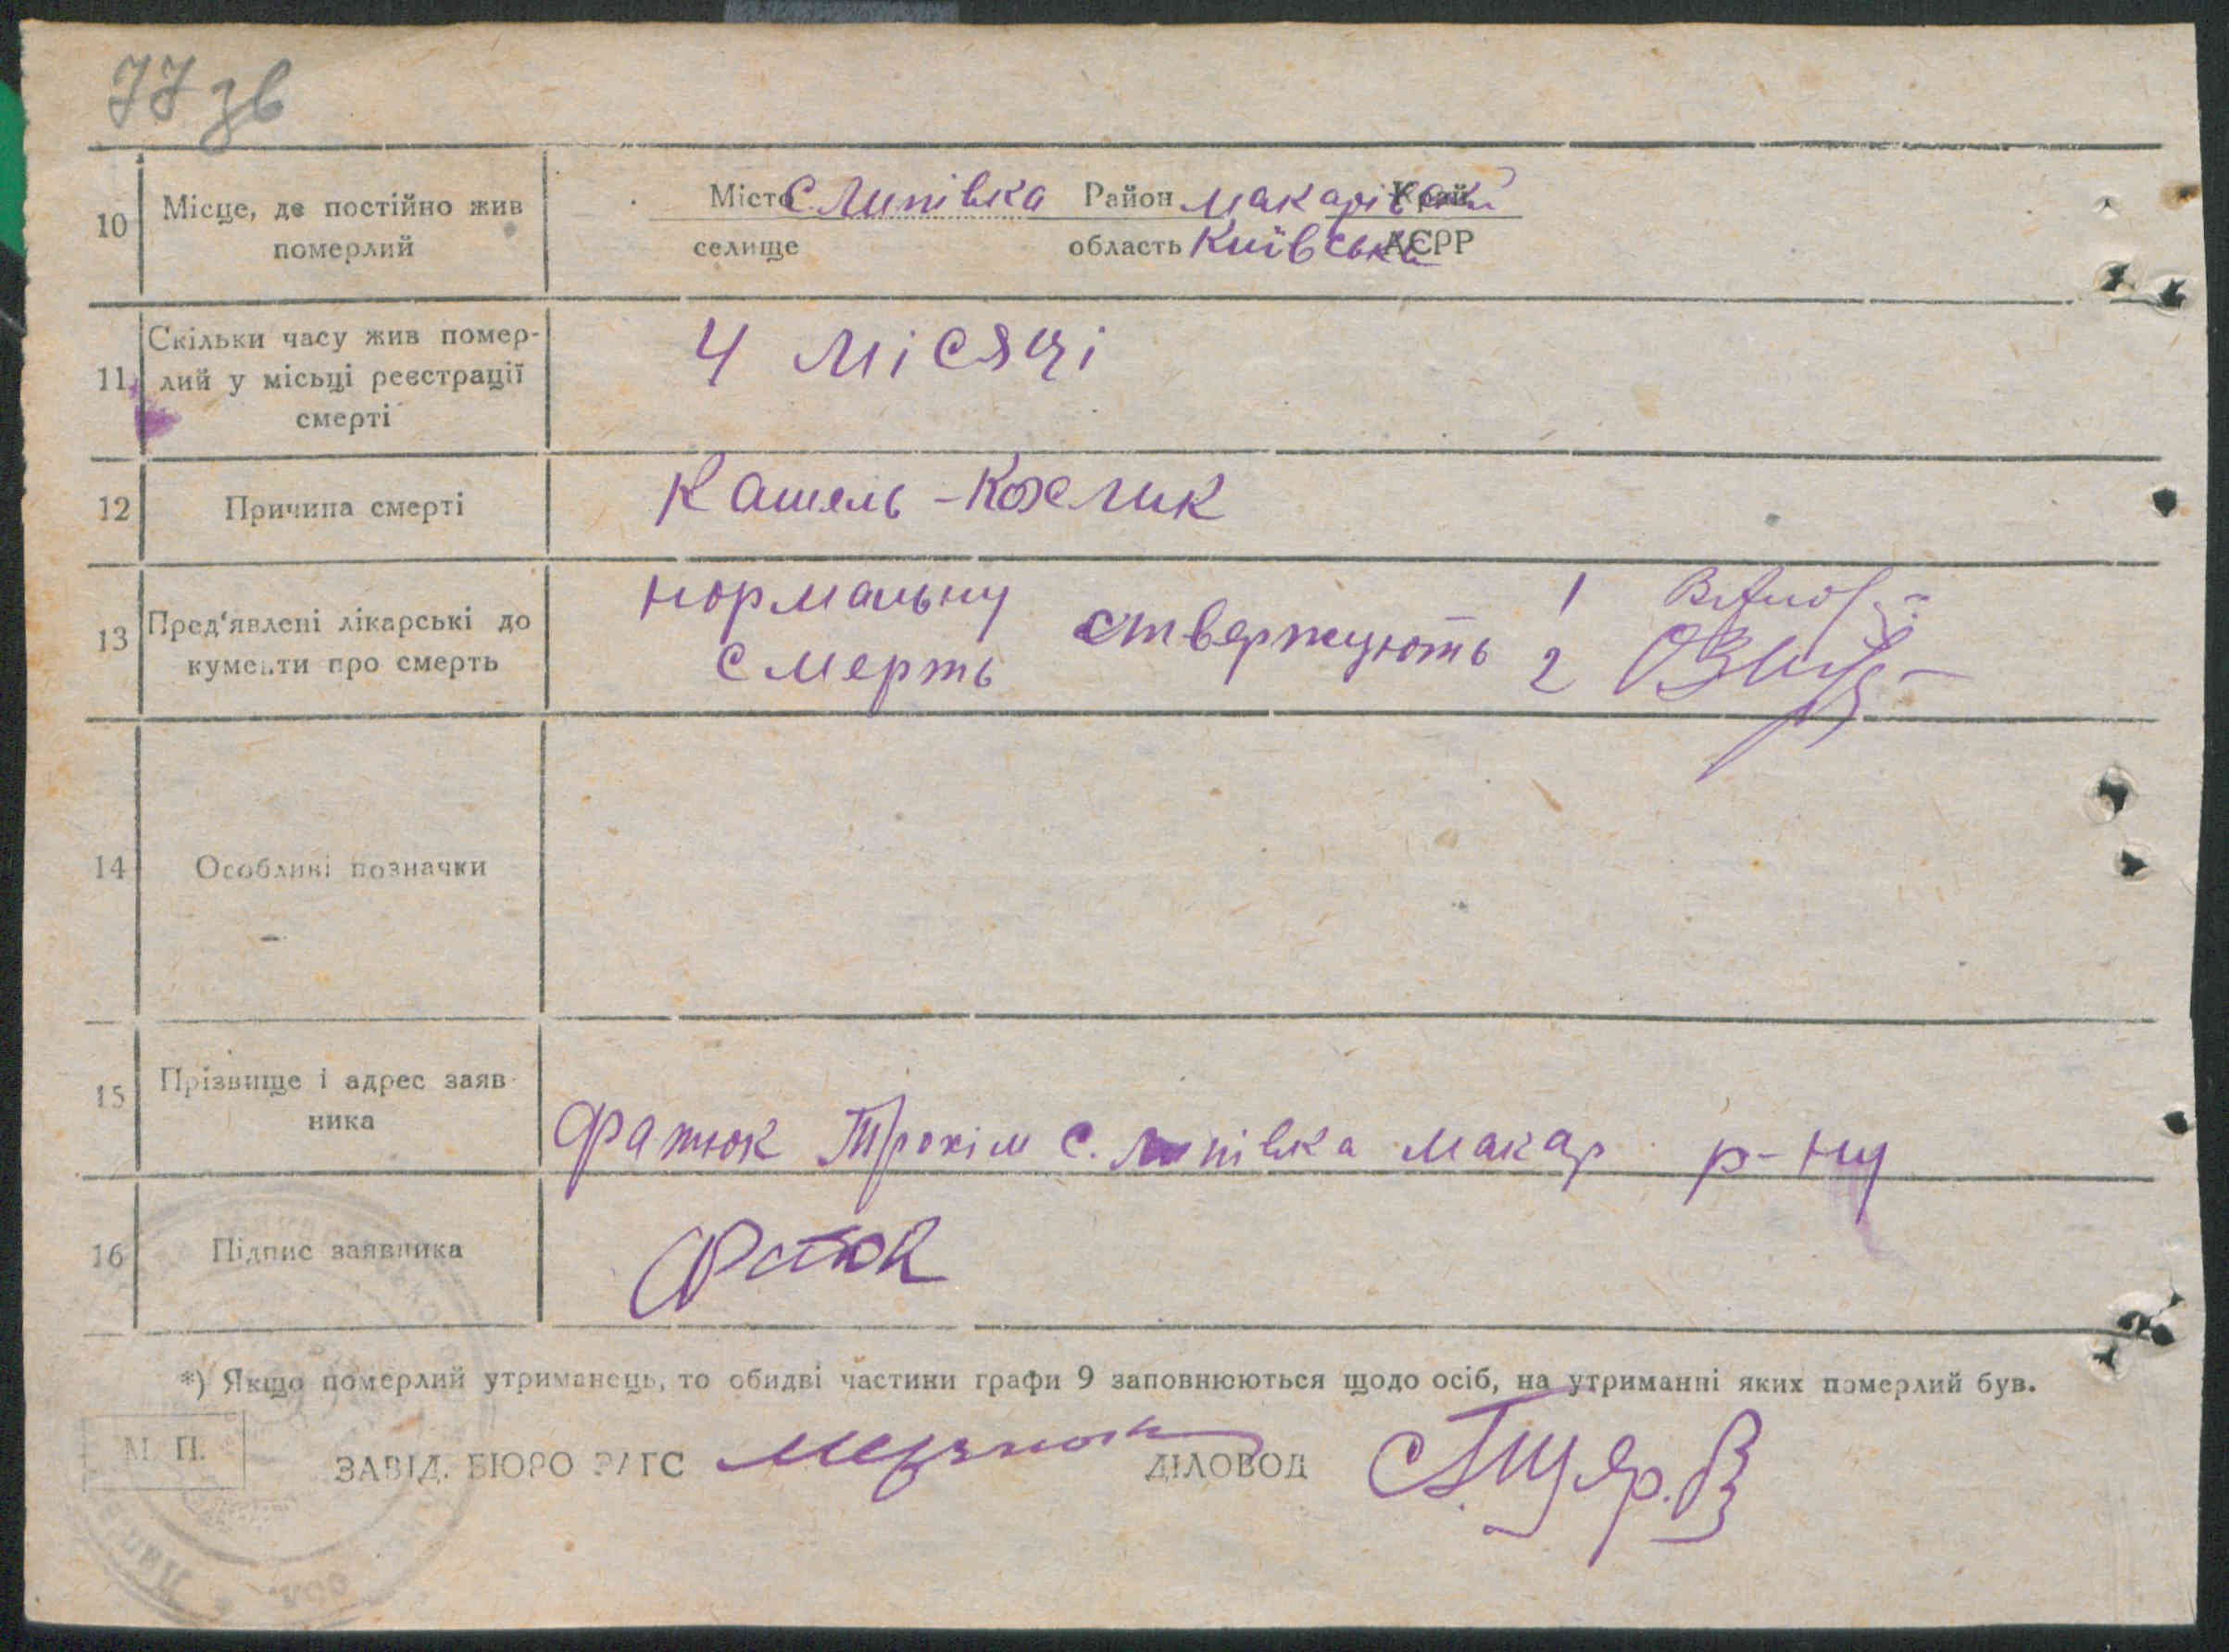 77 зв
10 Місце, де постійно жив померлий
Місто с Липівка Район Макарівский Край
селище область Київська АСРР
11 Скільки часу жив помер-
лий у місьці реєстрації
смерті
4 місяці
12 Причина смерті
Кашель - Коклик
13 Пред'явлені лікарські до
кументи про смерть
нормальну
смерть ствержують 1
2
14 Особливі позначки
15 Прізвище і адрес заяв
ника
Фатюк Трохім с. Липівка Макар р-ну
16 Підпис заявника
Фатюк
*) Якщо померлий утриманець, то обидві частини графи 9 заповнюються щодо осіб, на утриманні яких померлий був.
М. П.
ЗАВІД. БЮРО РАГС ДІЛОВОД